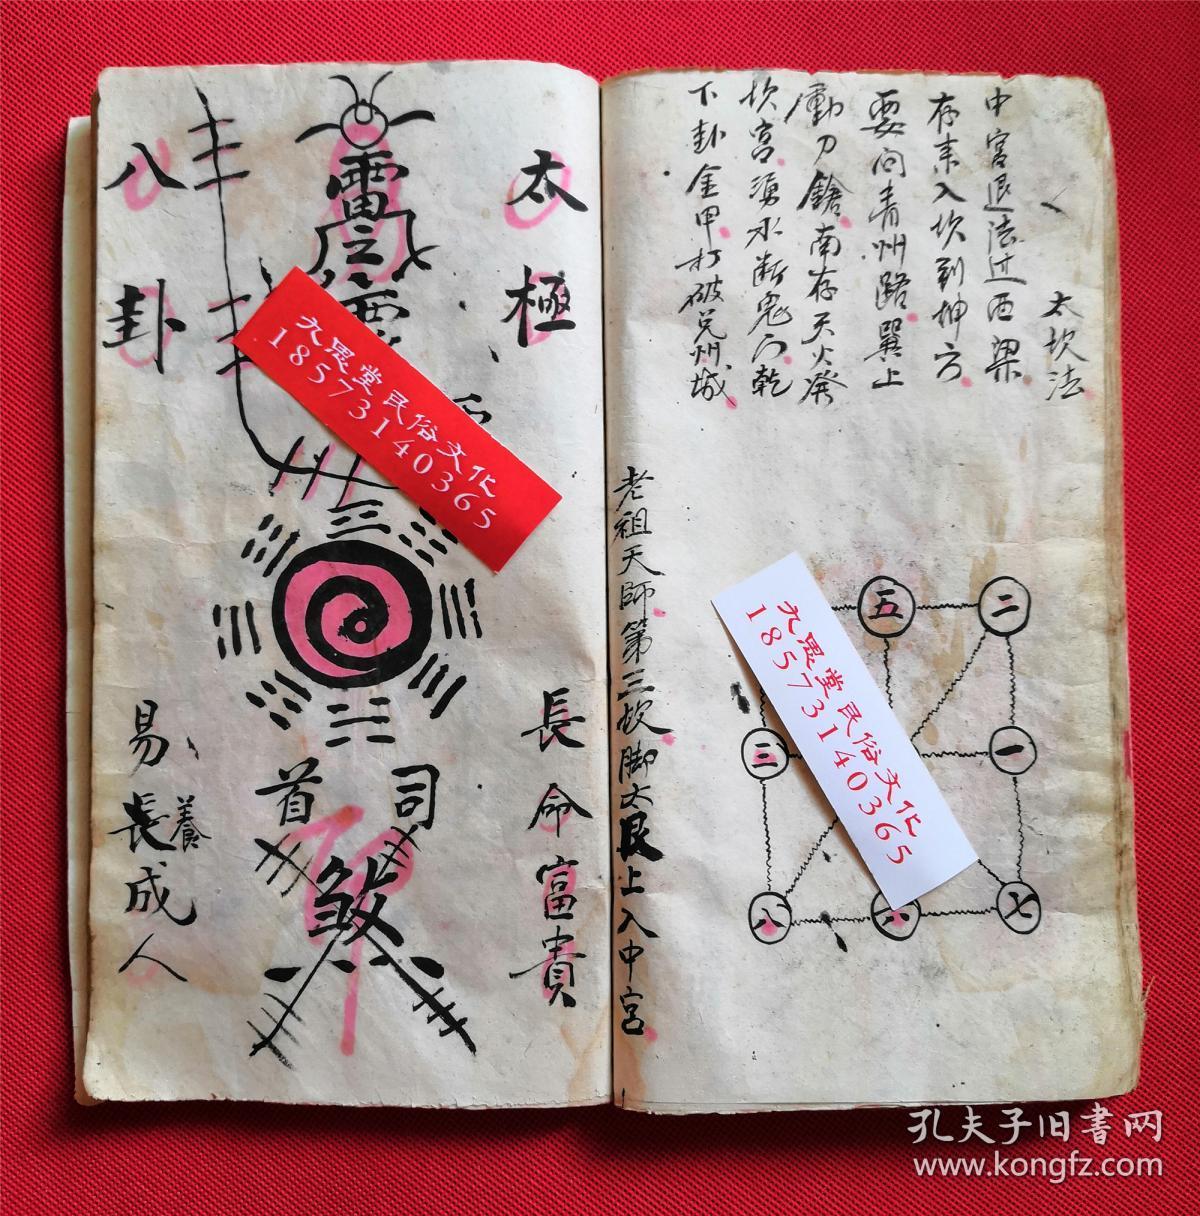 太坎法
中宮退法过西梁
存来入坎到坤方
要问青州路巽上
動刀鎗南存天火發
坎宫湧水断鬼门乾
下卦金甲打破兑州城
老祖天師第三坎脚大艮上入中宫
五
二
三
一
八
六
七
太極
八卦
雷
長命富貴
易長養成人
司
首
煞
九思堂民俗文化
18573140365
九思堂民俗文化
18573140365
孔夫子旧书网
www.kongfz.com